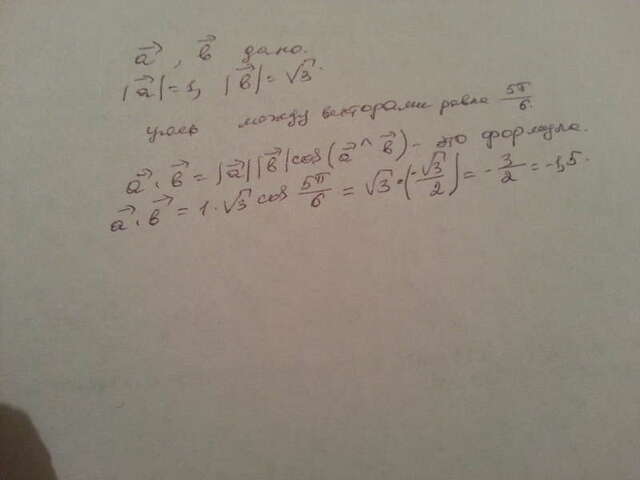 a⃗ , b⃗ дано.
|a⃗|=1, |b⃗|=√3.
угол между векторами равна 5π/6.
a⃗ · b⃗ = |a⃗||b⃗|cos(a⃗ ^ b⃗) - это формула.
a⃗ · b⃗ = 1·√3 cos 5π/6 = √3·(-√3/2) = -3/2 = -1,5.